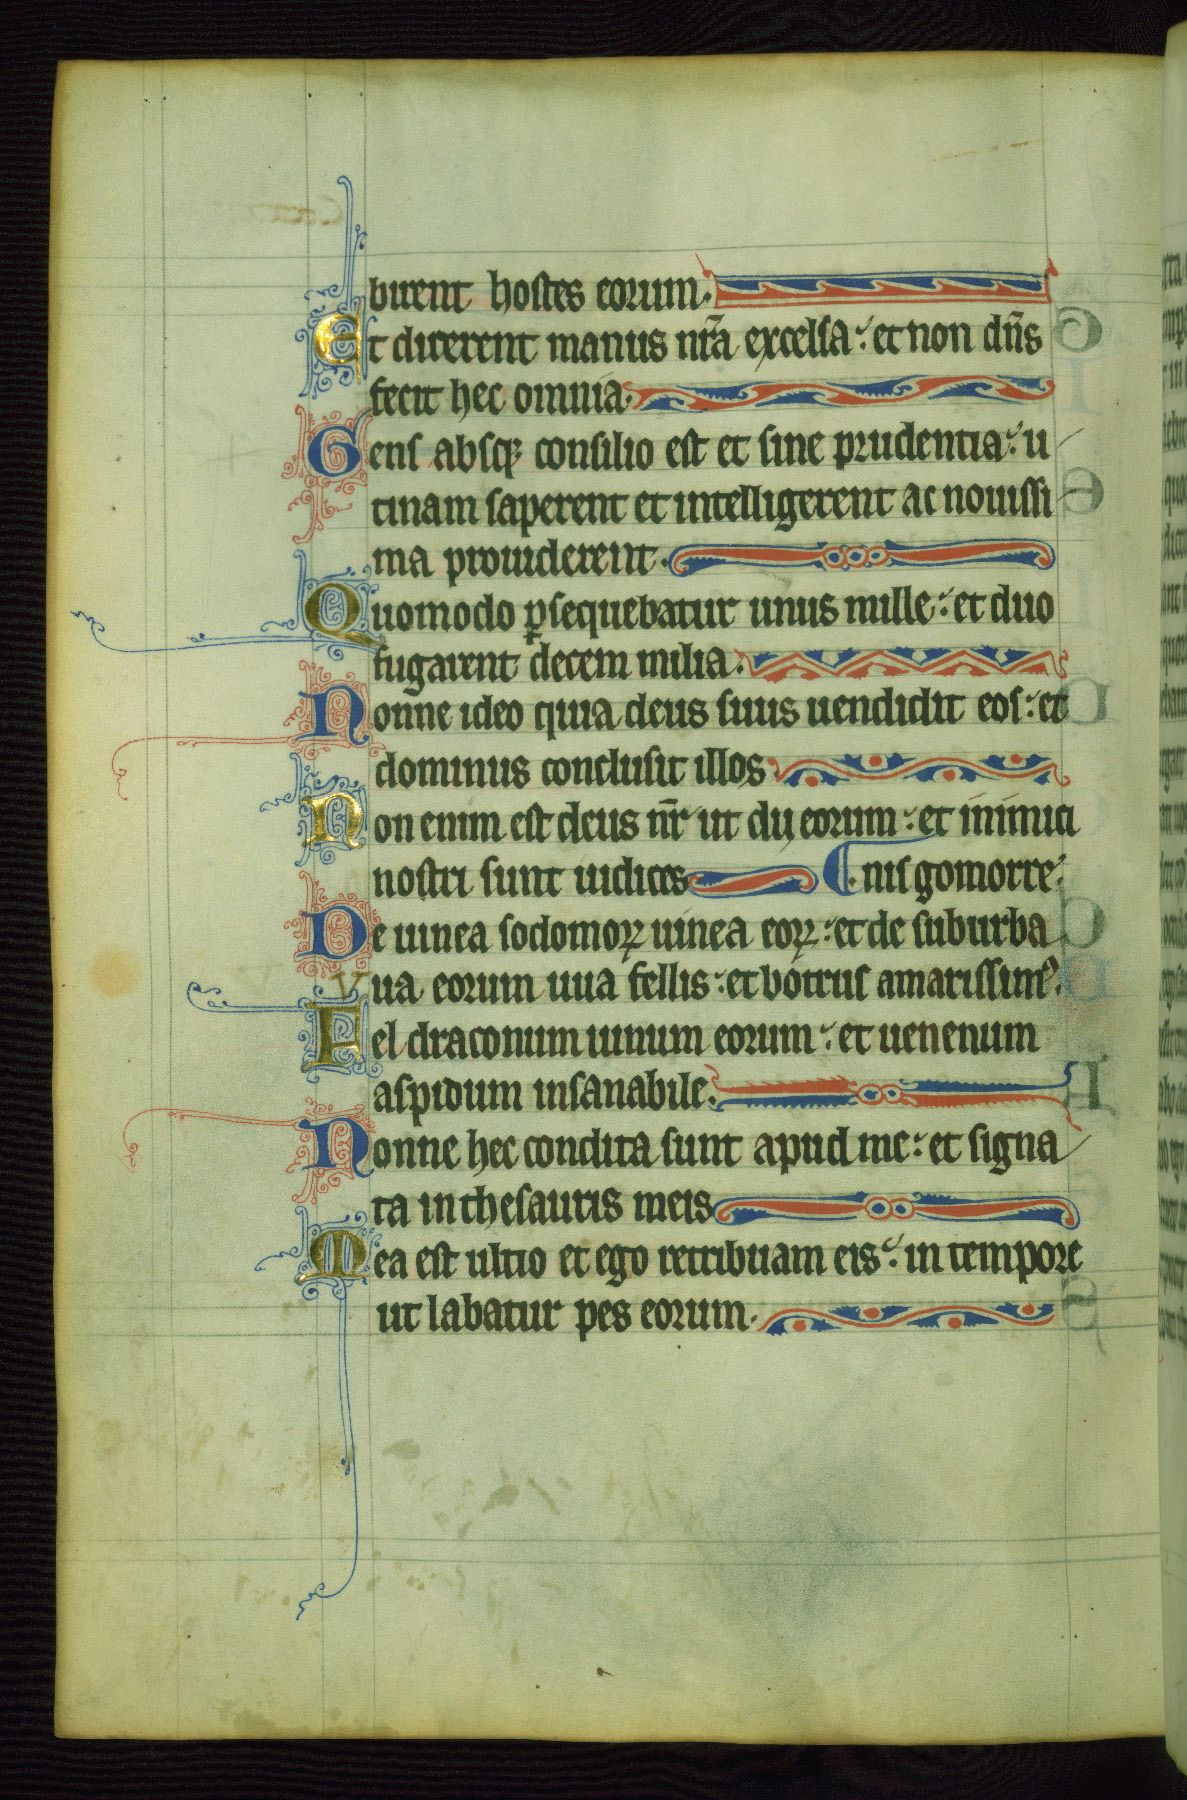 birent hostes eorum.
Et dicerent manus nr̃a excelsa: et non dñs
fecit hec omnia.
Gens absqꝫ consilio est et sine prudentia: u
tinam saperent et intelligerent ac nouissi
ma prouiderent.
Quomodo ꝑsequebatur unus mille: et duo
fugarent decem milia.
Nonne ideo quia deus suus uendidit eos: et
dominus conclusit illos.
Non enim est deus nr̃ ut dij eorum: et inimici
nostri sunt iudices ¶.nis gomorre:
De uinea sodomoꝝ uinea eoꝝ: et de suburba
Vua eorum uua fellis: et botrus amarissimꝰ.
Fel draconum uinum eorum: et uenenum
aspidum insanabile.
Nonne hec condita sunt apud me: et signa
ta in thesauris meis
Mea est ultio et ego retribuam eis: in tempore
ut labatur pes eorum.